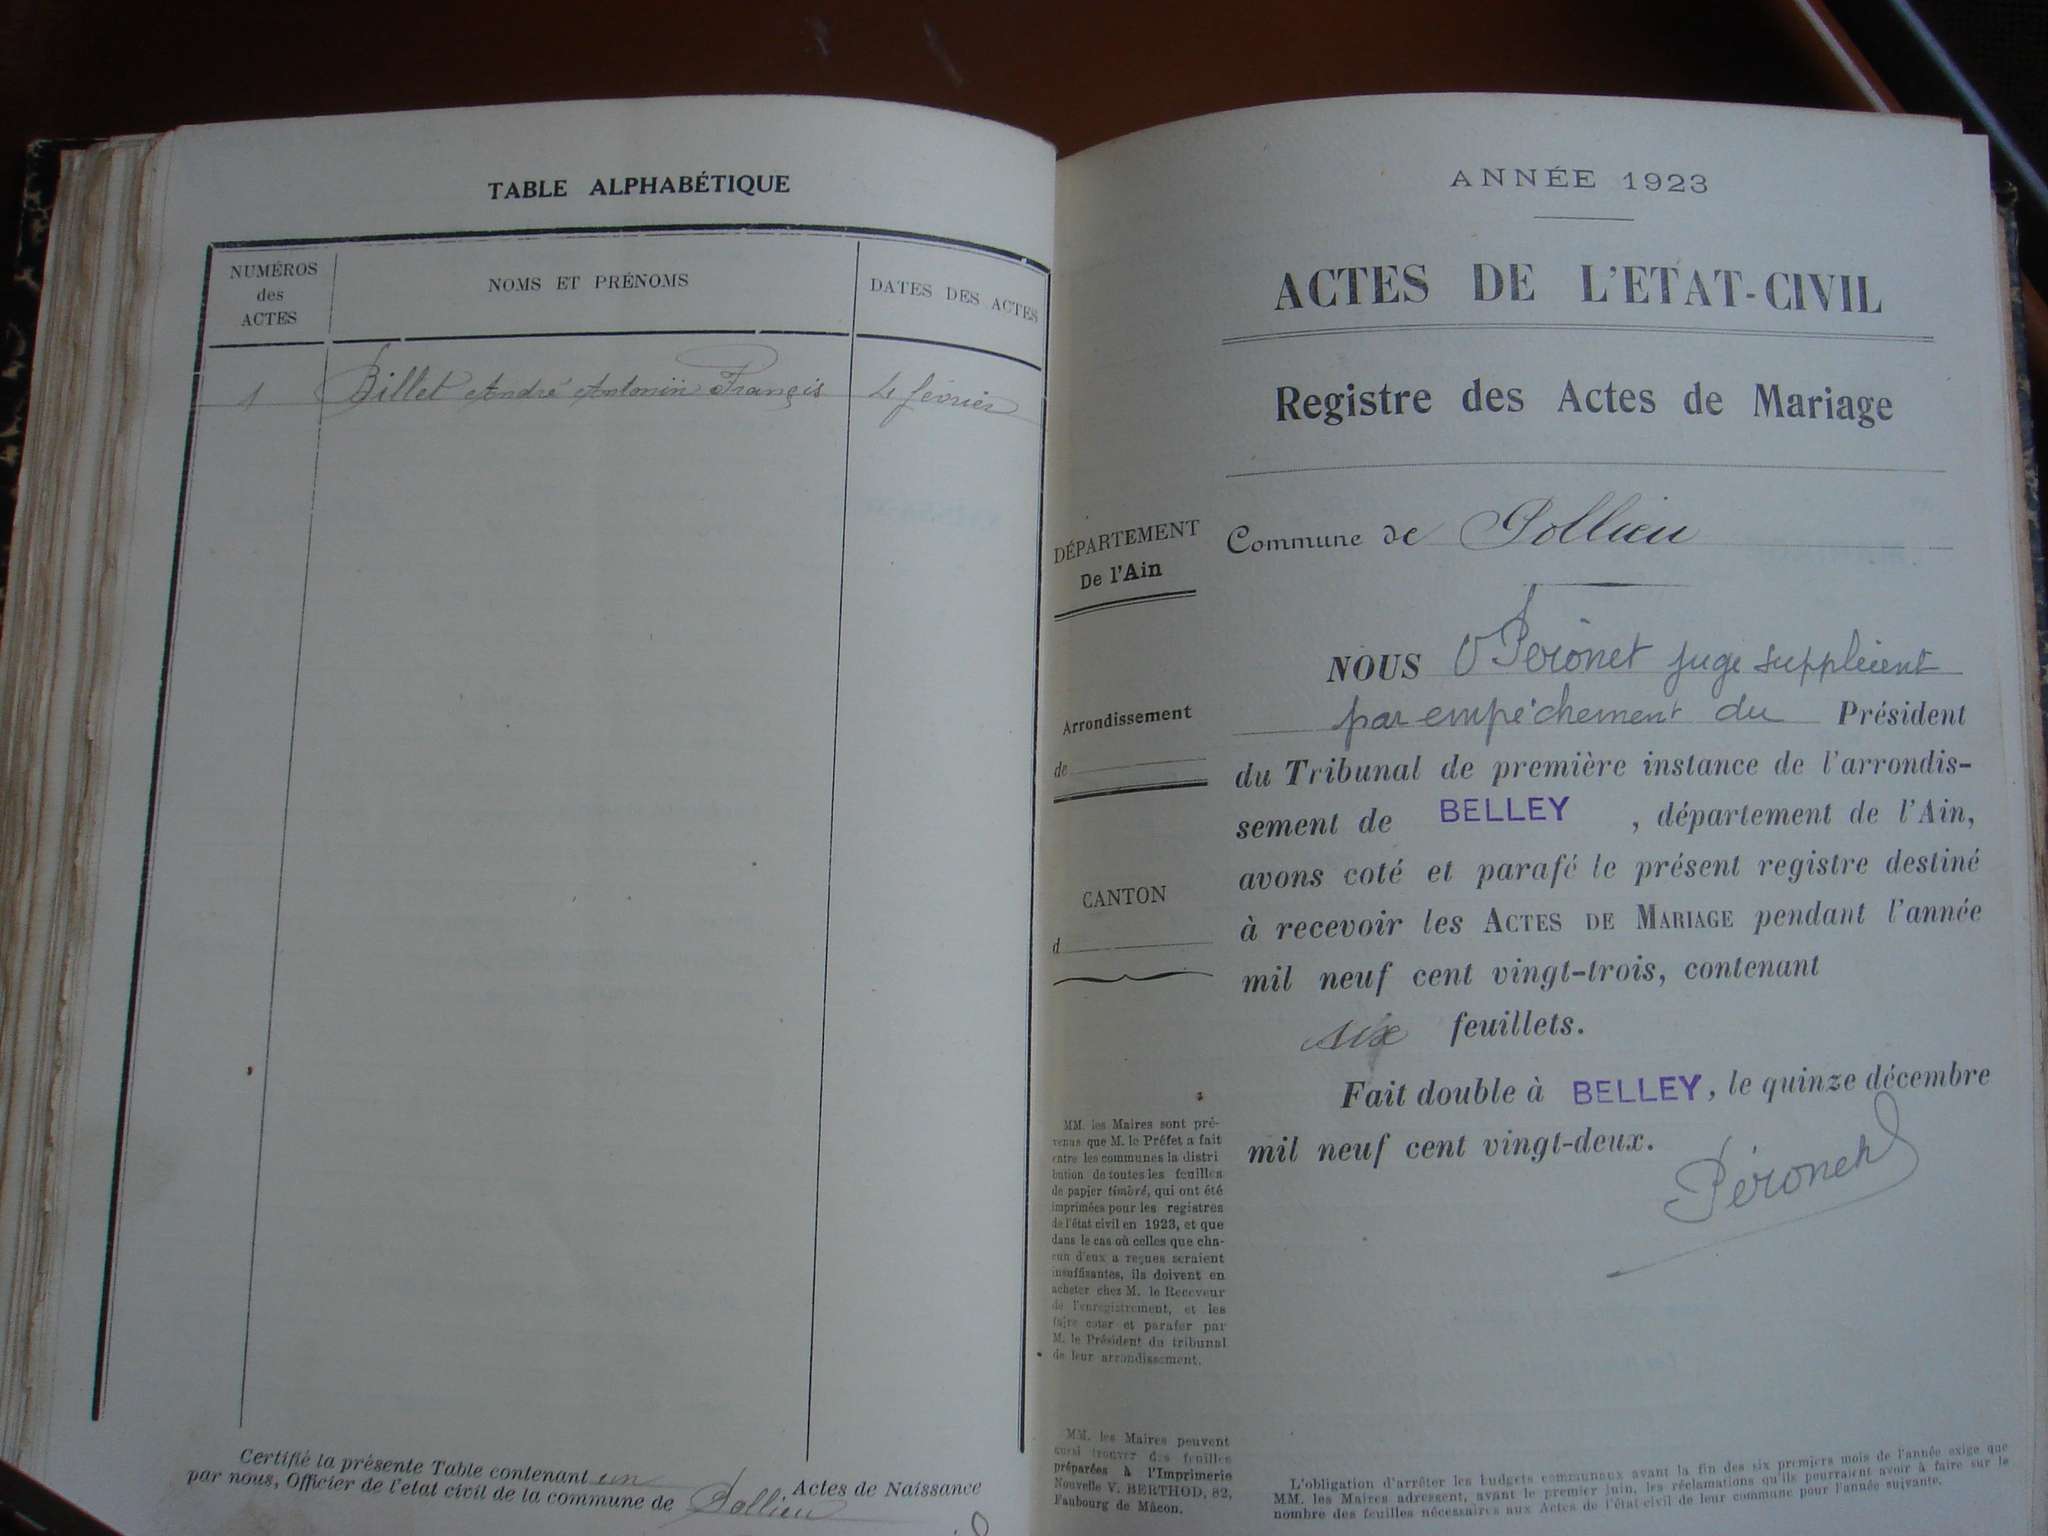 TABLE ALPHABÉTIQUE
NUMÉROS
des
ACTES
NOMS ET PRÉNOMS
DATES DES ACTES
1 Billet André Antonin Françis 4 février
Certifié la présente Table contenant un Actes de Naissance
par nous, Officier de l'etat civil de la commune de Pollieu
ANNÉE 1923
ACTES DE L'ETAT-CIVIL
Registre des Actes de Mariage
DÉPARTEMENT
De l'Ain
Arrondissement
de
CANTON
d
Commune de Pollieu
NOUS Péronet juge suppléent
par empêchement du Président
du Tribunal de première instance de l'arrondis-
sement de BELLEY, département de l'Ain,
avons coté et parafé le présent registre destiné
à recevoir les ACTES DE MARIAGE pendant l'année
mil neuf cent vingt-trois, contenant
six feuillets.
Fait double à BELLEY, le quinze décembre
mil neuf cent vingt-deux.
Péronet
MM. les Maires sont pré-
venus que M. le Préfet a fait
entre les communes la distri
bution de toutes les feuilles
de papier timbré, qui ont été
imprimées pour les registres
de l'état civil en 1923, et que
dans le cas où celles que cha-
cun d'eux a reçues seraient
insuffisantes, ils doivent en
acheter chez M. le Receveur
de l'enregistrement, et les
faire coter et parafer par
M. le Président du tribunal
de leur arrondissement.
MM. les Maires peuvent
aussi trouver des feuilles
préparées à l'Imprimerie
Nouvelle V. BERTHOD, 82,
Faubourg de Mâcon.
L'obligation d'arrêter les budgets communaux avant la fin des six premiers mois de l'année exige que
MM. les Maires adressent, avant le premier juin, les réclamations qu'ils pourraient avoir à faire sur le
nombre des feuilles nécessaires aux Actes de l'état-civil de leur commune pour l'année suivante.